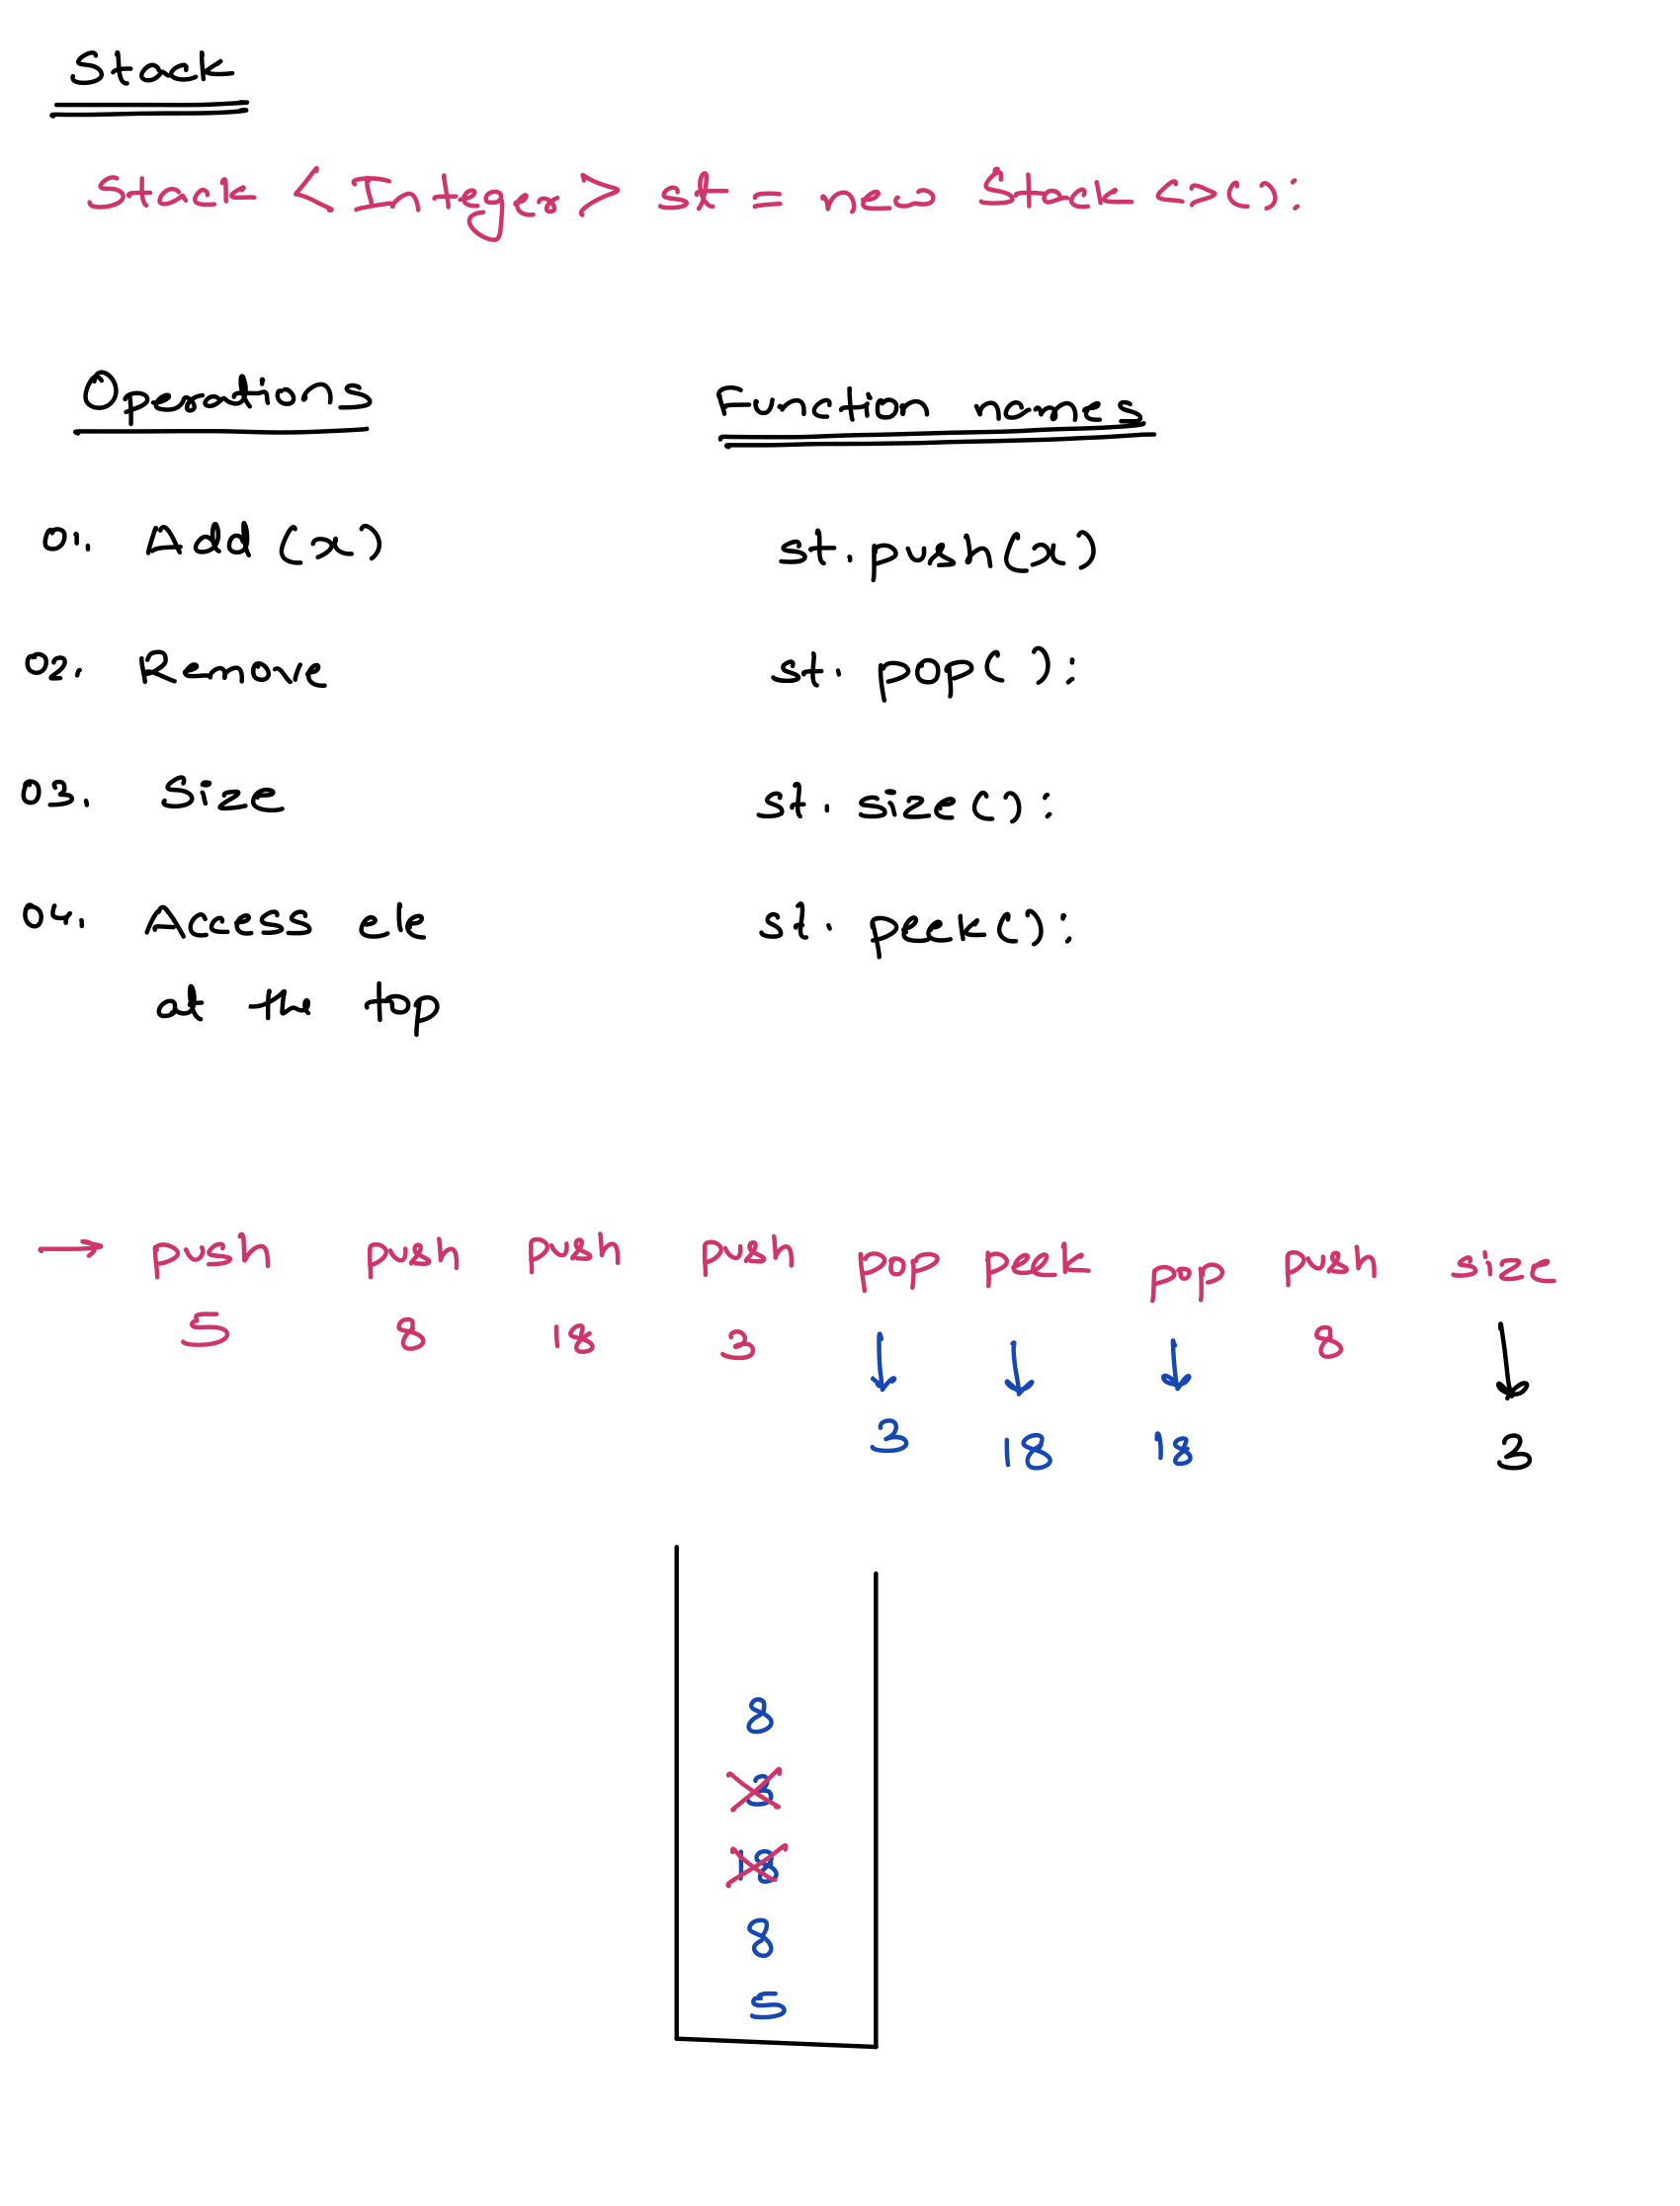 Stack
Stack <Integer> st = new Stack<>();
Operations Function names
01. Add(x) st.push(x)
02. Remove st.pop();
03. Size st.size();
04. Access ele st.peek();
at the top
→ push push push push pop peek pop push size
5 8 18 3 ↓ ↓ ↓ 8 ↓
3 18 18 3
8
3
18
8
5